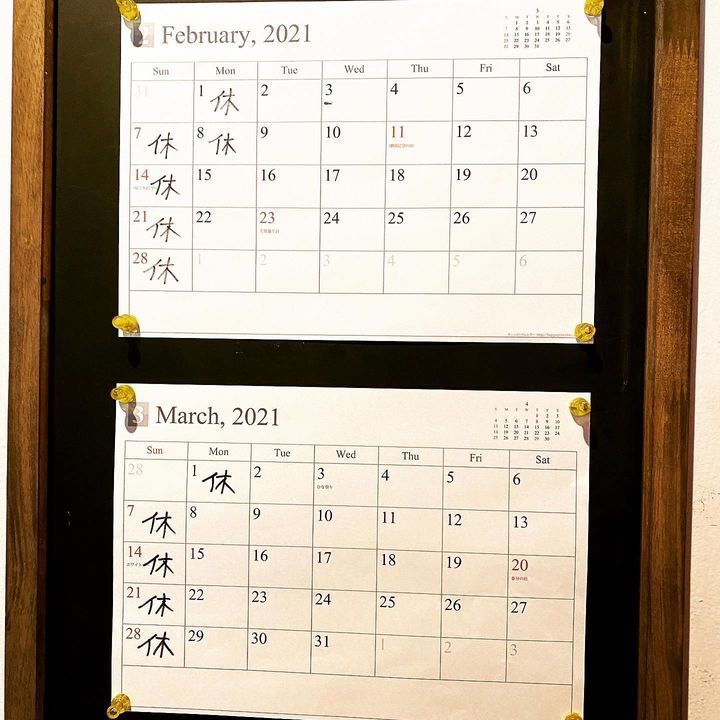 2 February, 2021
Sun Mon Tue Wed Thu Fri Sat
31 1 休 2 3 4 5 6
7 休 8 休 9 10 11 12 13
建国記念の日
14 休 15 16 17 18 19 20
21 休 22 23 24 25 26 27
天皇誕生日
28 休 1 2 3 4 5 6
3 March, 2021
Sun Mon Tue Wed Thu Fri Sat
28 1 休 2 3 4 5 6
ひな祭り
7 休 8 9 10 11 12 13
14 休 15 16 17 18 19 20
ホワイト
春分の日
21 休 22 23 24 25 26 27
28 休 29 30 31 1 2 3